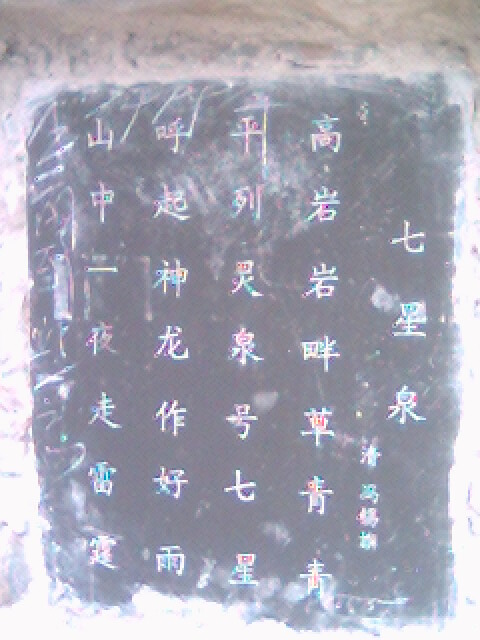 七星泉
清 冯
高岩岩畔草青青
平列灵泉号七星
呼起神龙作好雨
山中一夜走雷霆